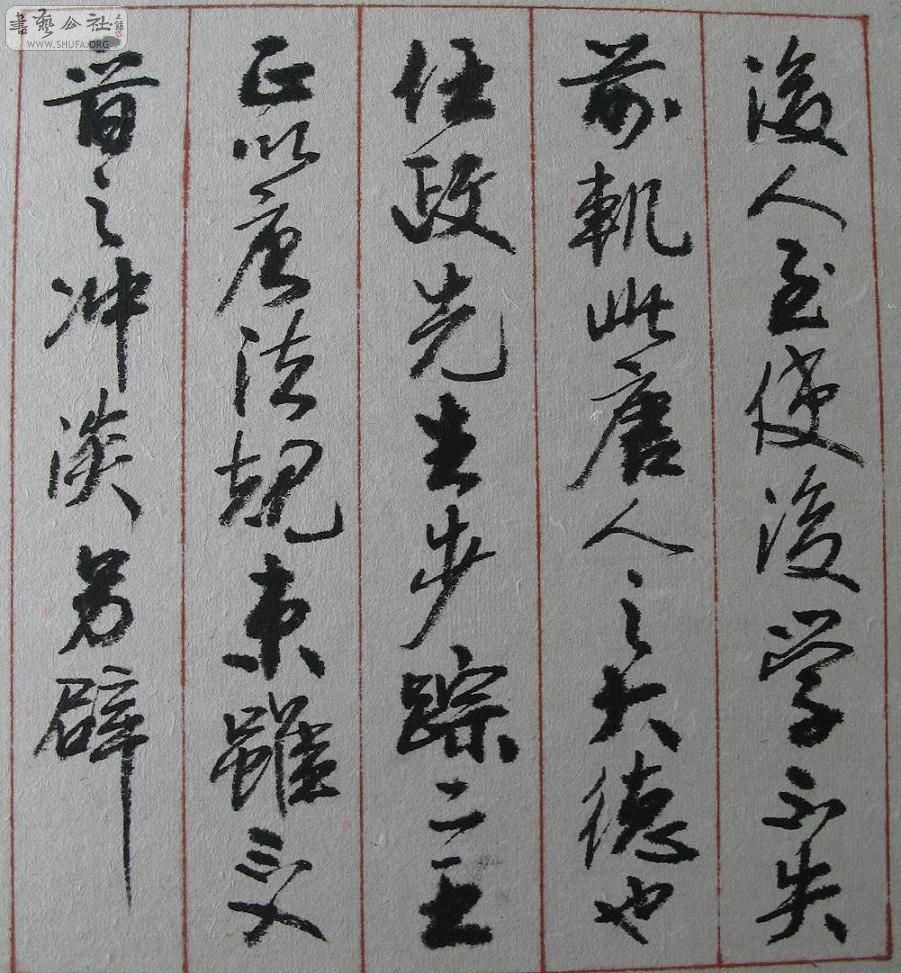 後人至使後学不失
前軌此唐人之大德也
任政先生步踪二王
正以唐法規束雖
晋之冲淡另辟
書藝公社
WWW.SHUFA.ORG